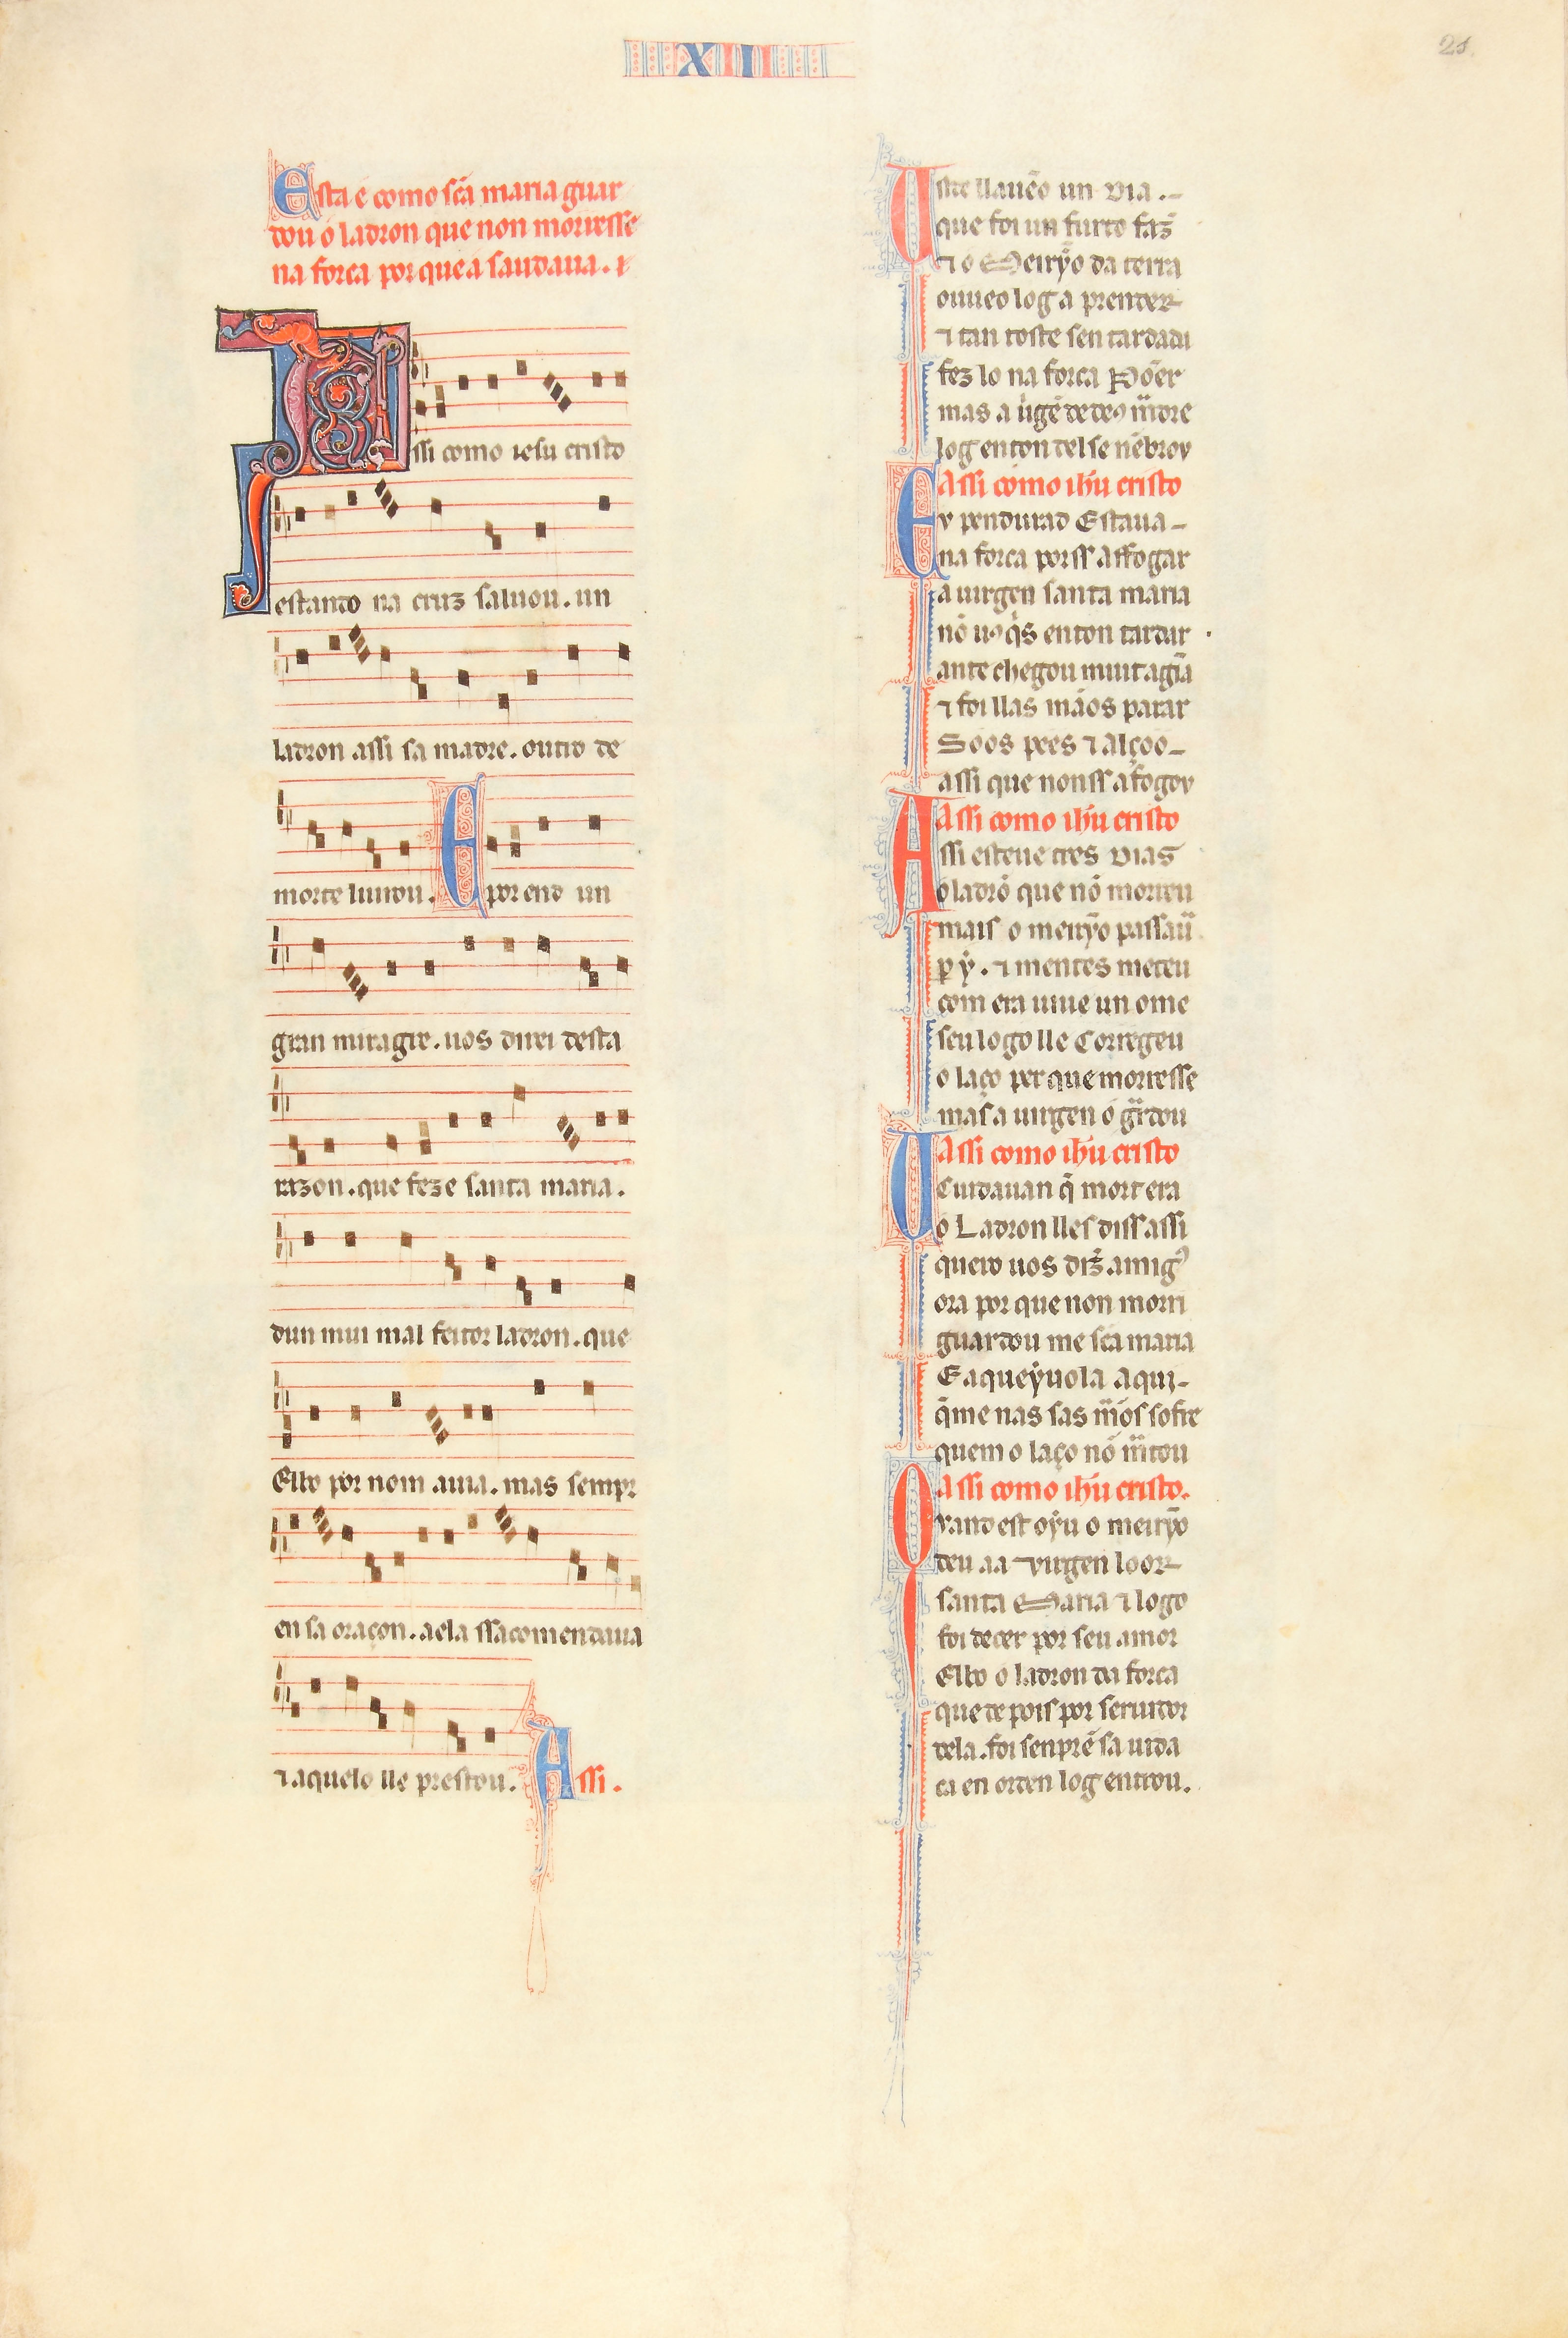 XIII
21
Esta é como scã maria guar
dou o ladron que non morresse
na forca por que a saudaua.
Assi como iesu cristo
estando na cruz saluou. un
ladron assi sa madre. outro de
morte liurou. E por end un
gran miragre. uos direi desta
razon. que feze santa maria.
dun mui mal feitor ladron. que
Elbo por nom auia. mas sempr
en sa oraçon. a ela ssacomendaua
⁊ aquelo lle prestou. Assi.
Aste lla uẽo un dia .-
que foi un furto faz̃
⁊ o Meirỹo da terra
ouueo log a prender
⁊ tan toste sen tardada
fez lo na forca Põer
mas a uirgẽ de deꝯ madre
log enton del se nẽbrov
Assi como ihũ cristo
Ev pendurad Estaua -
na forca porss affogar
a uirgen santa maria
nõ uꝯ q̇s enton tardar
ante chegou muit agĩa
⁊ foi llas mãos parar
Soos pees ⁊ alçoo -
assi que nonss afogov
Assi como ihũ cristo
Assi esteue tres dias
o ladrõ que nõ morreu
mais o meirỹo passaua
ꝑ ẏ. ⁊ mentes meteu
com era uiue un ome
seu logo lle Corregeu
o laço per que morresse
mas a uirgen o guardou
Assi como ihũ cristo
U Cuidauan q̃ mort era
o Ladron lles diss assi
quero uos diz̃ amigꝯ
ora por que non morri
guardou me scã maria
E aqueẏuola aqui -
q̃ me nas sas mãos sofre
quem o laço nõ matou
Assi como ihũ cristo.
Qvand est oẏu o meirỹo
deu aa uirgen loor -
santa Maria ⁊ logo
foi decer por seu amor
Elbo o ladron da forca
que depois por seruidor
dela. foi senpre sa uida
ca en orden log entrou.